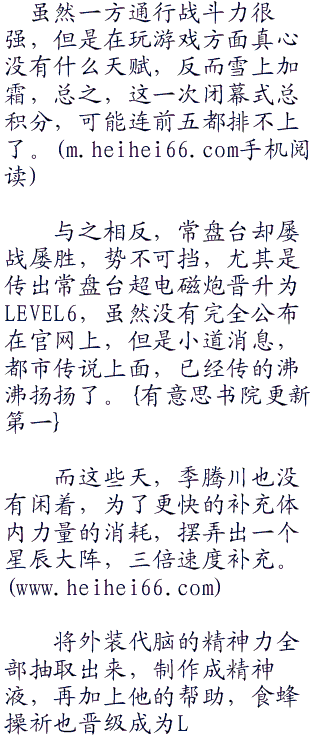 虽然一方通行战斗力很
强，但是在玩游戏方面真心
没有什么天赋，反而雪上加
霜，总之，这一次闭幕式总
积分，可能连前五都排不上
了。(m.heihei66.com手机阅
读)
与之相反，常盘台却屡
战屡胜，势不可挡，尤其是
传出常盘台超电磁炮晋升为
LEVEL6，虽然没有完全公布
在官网上，但是小道消息，
都市传说上面，已经传的沸
沸扬扬了。{有意思书院更新
第一}
而这些天，季腾川也没
有闲着，为了更快的补充体
内力量的消耗，摆弄出一个
星辰大阵，三倍速度补充。
(www.heihei66.com)
将外装代脑的精神力全
部抽取出来，制作成精神
液，再加上他的帮助，食蜂
操祈也晋级成为L